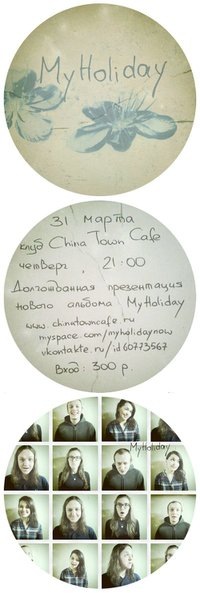 My Holiday
31 марта
клуб China Town Cafe
четверг , 21:00
Долгожданная презентация
нового альбома MyHoliday
www.chinatowncafe.ru
myspace.com/myholidaynow
vkontakte.ru/id60773567
Вход: 300 р.
MyHoliday